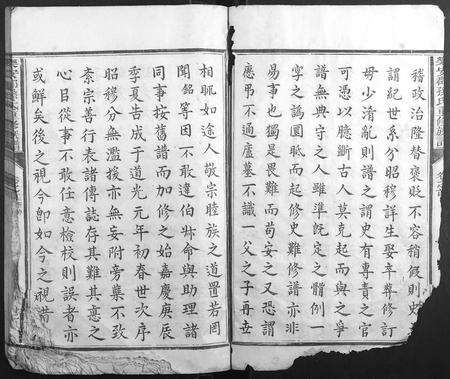 稽政治隆替褒貶不容稍假則史
謂紀世系分昭穆詳生娶卒葬修訂
毋少淆亂則譜之謂史有專責之官
可憑以臆斷古人莫克起而與之爭
譜無與守之人雖準旣定之體例一
字之譌圓而起修史難修譜亦非
易事也獨是畏難而苟安之又恐謂
應弔不過廬墓不識一父之子再世
相眡如途人敬宗睦族之道置若罔
聞銘等因不敢違伯叔命與助理諸
同事按舊譜而加修之始嘉慶庚辰
季夏告成于道光元年初春世次序
昭穆分無濫援亦無妄附旁蒐不致
紊宗善行表諸傳誌存其難其愼之
心目從事不敢任意檢校則誤者亦
或鮮矣後之視今卽如今之視昔